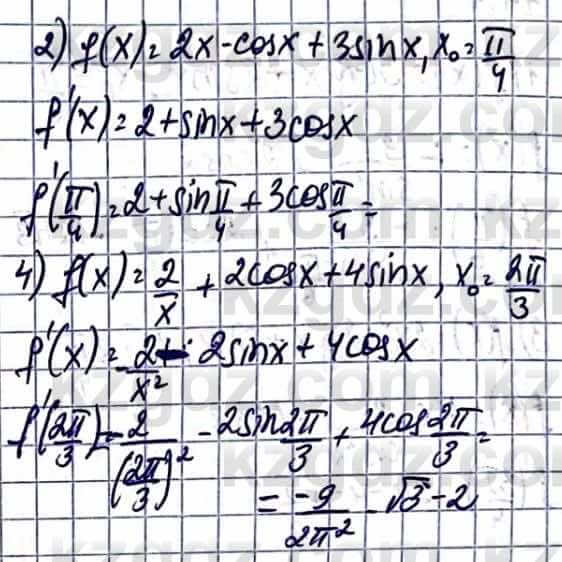 2) f(x)=2x-cosx+3sinx, x₀=π/4
f'(x)=2+sinx+3cosx
f'(π/4)=2+sin π/4+3cos π/4=
4) f(x)=2/x+2cosx+4sinx, x₀=2π/3
f'(x)=-2/x²-2sinx+4cosx
f'(2π/3)=-2/(2π/3)²-2sin 2π/3+4cos 2π/3=
=-9/2π²-√3-2